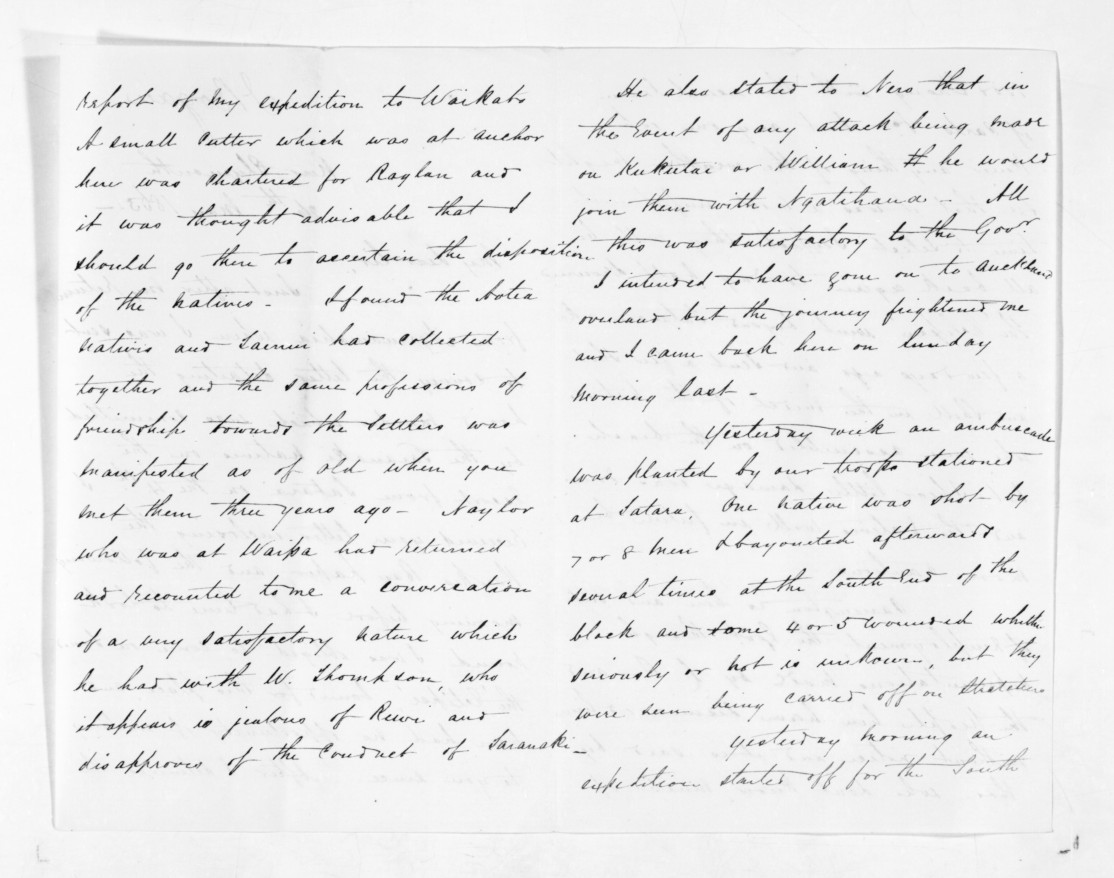 report of my expedition to Waikato
A small Cutter which was at anchor
here was chartered for Raglan and
it was thought advisable that I
should go there to ascertain the disposition
of the natives - I found the
natives and had collected
together and the same professions of
friendship towards the Settlers was
manifested as of old when you
met them three years ago - Naylor
who was at Waipa had returned
and recounted to me a conversation
of a very satisfactory nature which
he had with W. Thompson, who
it appears is jealous of Rewi and
disapproves of the Conduct of Taranaki -
He also stated to Nero that in
the Event of any attack being made
on Kukutai or William he would
join them with Ngatihaua - All
this was satisfactory to the Govr
I intended to have gone on to Auckland
overland but the journey frightened me
and I came back here on Sunday
morning last -
Yesterday week an ambuscade
was planted by our troops stationed
at Tatara. One native was shot by
7 or 8 men & bayoneted afterwards
several times at the South End of the
block and some 4 or 5 wounded whether
seriously or not is unkown, but they
were seen being carried off on stretchers
Yesterday morning an
expedition started off for the South